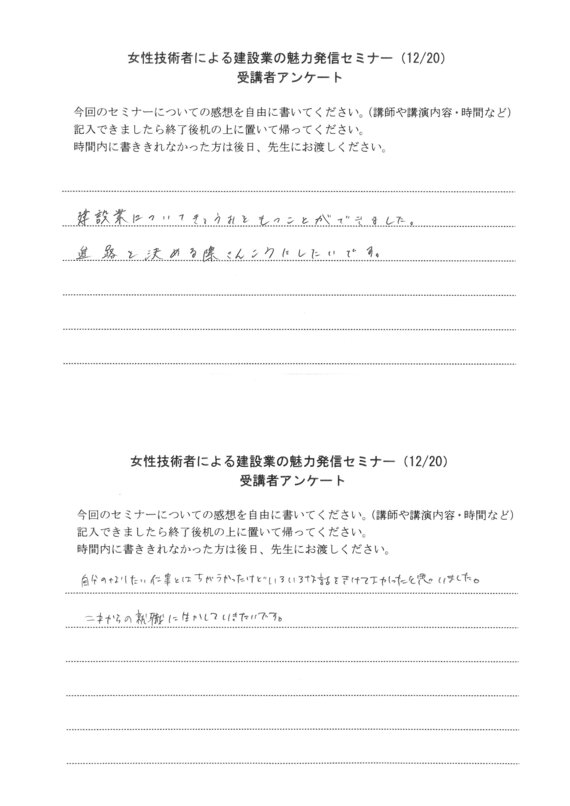 女性技術者による建設業の魅力発信セミナー（12/20）
受講者アンケート
今回のセミナーについての感想を自由に書いてください。（講師や講演内容・時間など）
記入できましたら終了後机の上に置いて帰ってください。
時間内に書ききれなかった方は後日、先生にお渡しください。
建設業についてきょうみをもつことができました。
進路を決める際さんこうにしたいです。
女性技術者による建設業の魅力発信セミナー（12/20）
受講者アンケート
今回のセミナーについての感想を自由に書いてください。（講師や講演内容・時間など）
記入できましたら終了後机の上に置いて帰ってください。
時間内に書ききれなかった方は後日、先生にお渡しください。
自分のなりたい仕事とはちがうかったけどいろいろな話をきけてよかったと思いました。
これからの就職に生かしていきたいです。